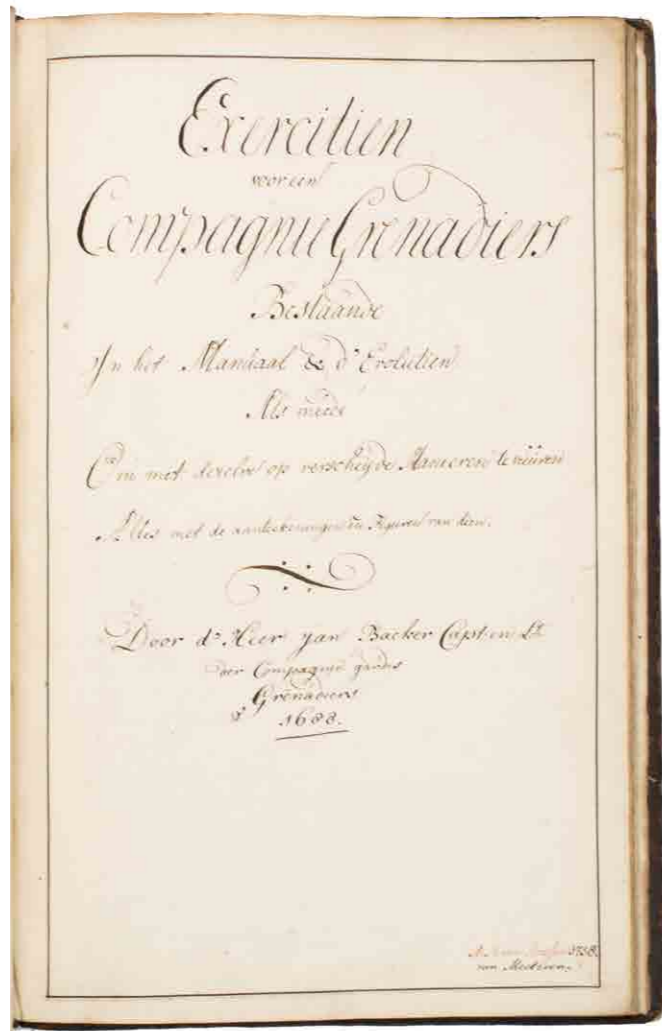 Exercitien
voor een
Compagnie Grenadiers
Bestaande
In het Manuaal & d' Evolutien
Als meede
Om met dezelve op verscheyde Manieren te vuüren
Alles met de aanteekeningen en Figuren van dien.
Door dʳ Heer Jan Backer Capt: en Lt
der Compagnie gardes
Grenadiers
1688.
1758.
van Meeteren.